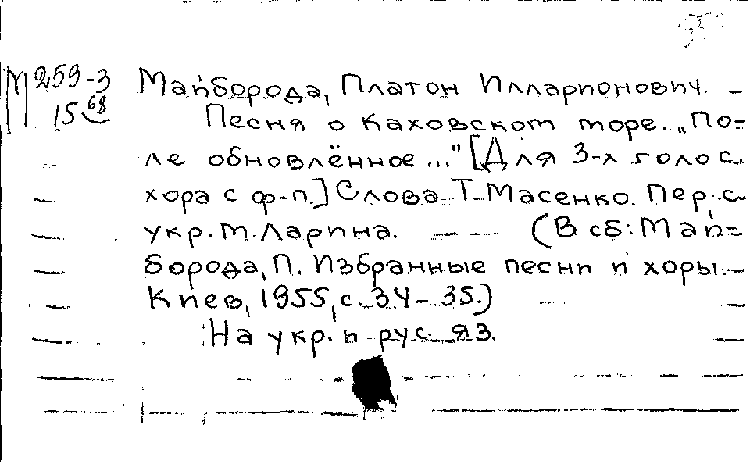 М 259-3
15 68
Майборода, Платон Илларионович. –
Песня о Каховском море. „По-
ле обновлённое..." [Для 3-х голос.
хора с ф-п.] Слова Т. Масенко. Пер. с
укр. М. Ларина. — (В сб: Май-
борода, П. Избранные песни и хоры. –
Киев, 1955, с. 34-35.)
На укр. и рус. яз.